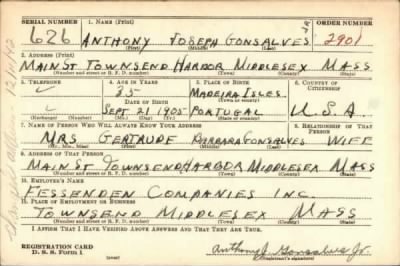 SERIAL NUMBER 1. NAME (Print) ORDER NUMBER
626 ANTHONY JOSEPH GONSALVES JR 2901
(First) (Middle) (Last)
2. ADDRESS (Print)
MAIN ST TOWNSEND HARBOR MIDDLESEX MASS
(Number and street or R. F. D. number) (Town) (County) (State)
3. TELEPHONE 4. AGE IN YEARS 5. PLACE OF BIRTH 6. COUNTRY OF CITIZENSHIP
35 MADEIRA ISLES
(Town or county)
DATE OF BIRTH
SEPT 21 1905 PORTUGAL U.S.A.
(Exchange) (Number) (Mo.) (Day) (Yr.) (State or country)
7. NAME OF PERSON WHO WILL ALWAYS KNOW YOUR ADDRESS 8. RELATIONSHIP OF THAT PERSON
MRS GERTRUDE BARBARA GONSALVES WIFE
(Mr., Mrs., Miss) (First) (Middle) (Last)
9. ADDRESS OF THAT PERSON
MAIN ST TOWNSEND HARBOR MIDDLESEX MASS
(Number and street or R. F. D. number) (Town) (County) (State)
10. EMPLOYER'S NAME
FESSENDEN COMPANIES INC.
11. PLACE OF EMPLOYMENT OR BUSINESS
TOWNSEND MIDDLESEX MASS
(Number and street or R. F. D. number) (Town) (County) (State)
I AFFIRM THAT I HAVE VERIFIED ABOVE ANSWERS AND THAT THEY ARE TRUE.
REGISTRATION CARD
D. S. S. Form 1 (over) Anthony J. Gonsalves Jr.
(Registrant's signature)